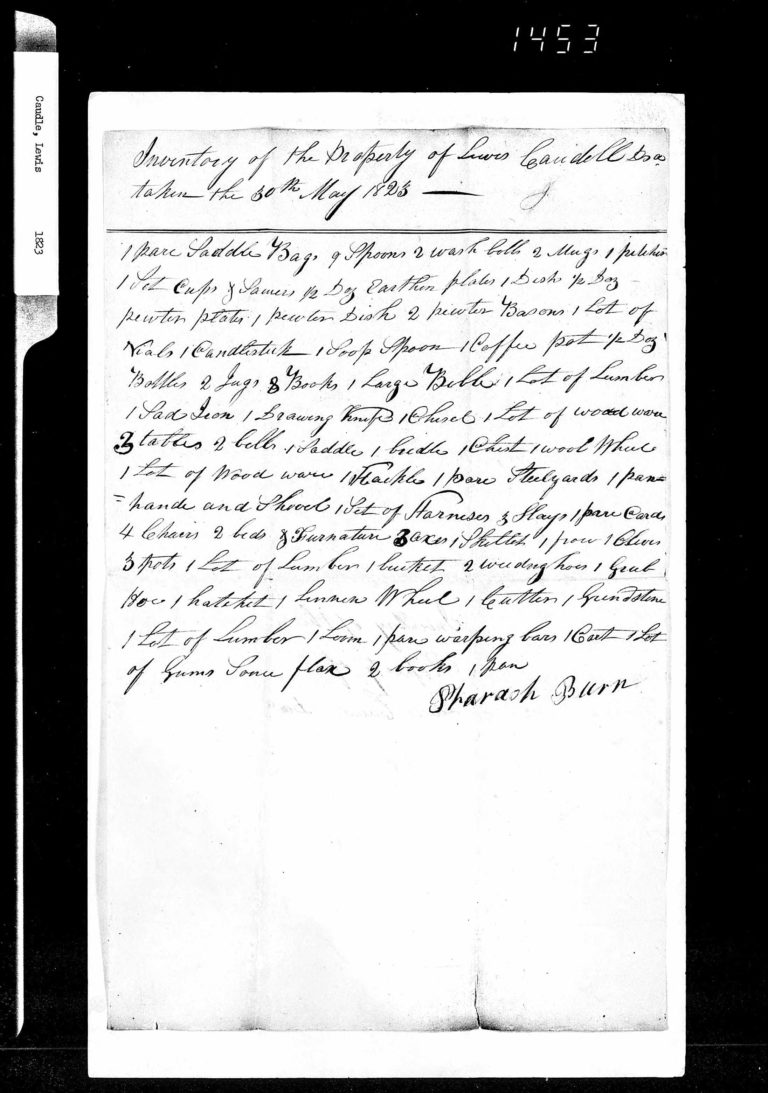 1453
Caudle, Lewis 1823
Inventory of the Property of Lewis Caudell Dsa
taken the 30th May 1823
1 pare Saddle Bags 9 Spoons 2 wash bolls 2 Mugs 1 pitcher
1 Set Cups & Sawers 1/2 Doz Earthen plates 1 Dish 1/2 Doz
pewter plates 1 pewter Dish 2 pewter Basons 1 Lot of
Vials 1 Candlestick 1 Soop Spoon 1 Coffee pot 1/2 Doz
Bottles 2 Jugs 8 Books 1 Large Bible 1 Lot of Lumber
1 Sad Iron 1 Drawing Knife 1 Chisel 1 Lot of wood ware
3 tables 2 bells 1 Saddle 1 bridle 1 Chist 1 wool Wheel
1 Lot of Wood ware 1 Hackle 1 pare Steelyards 1 pan=
=hande and Shovel 1 Set of Harneses & Slays 1 pare Cards
4 Chairs 2 beds & Furnature 3 axes 1 Skillet 1 pow 1 Clevis
3 pots 1 Lot of Lumber 1 bucket 2 weeding hoes 1 Grub
Hoe 1 hatchet 1 Linnen Wheel 1 Cutter 1 Grindstone
1 Lot of Lumber 1 Loom 1 pare warping bars 1 Cart 1 Lot
of Gums Some flax 2 books 1 pan
Pharaoh Burn